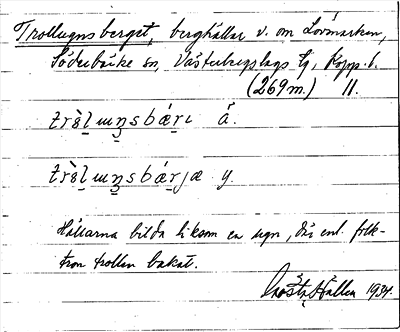 Trollugnsberget, berghällar v. om Lövmarken,
Söderbärke sn, Västerbergslags tg, Kopp. l.
(269 m.) 11.
trὸl ɯnsbæ̀rɩ ä.
trὸl ɯnsbæ̀rjæ y.
Hällarna bilda liksom en ugn, där enl. folk-
tron trollen bakat.
Gösta Hallen 1934.